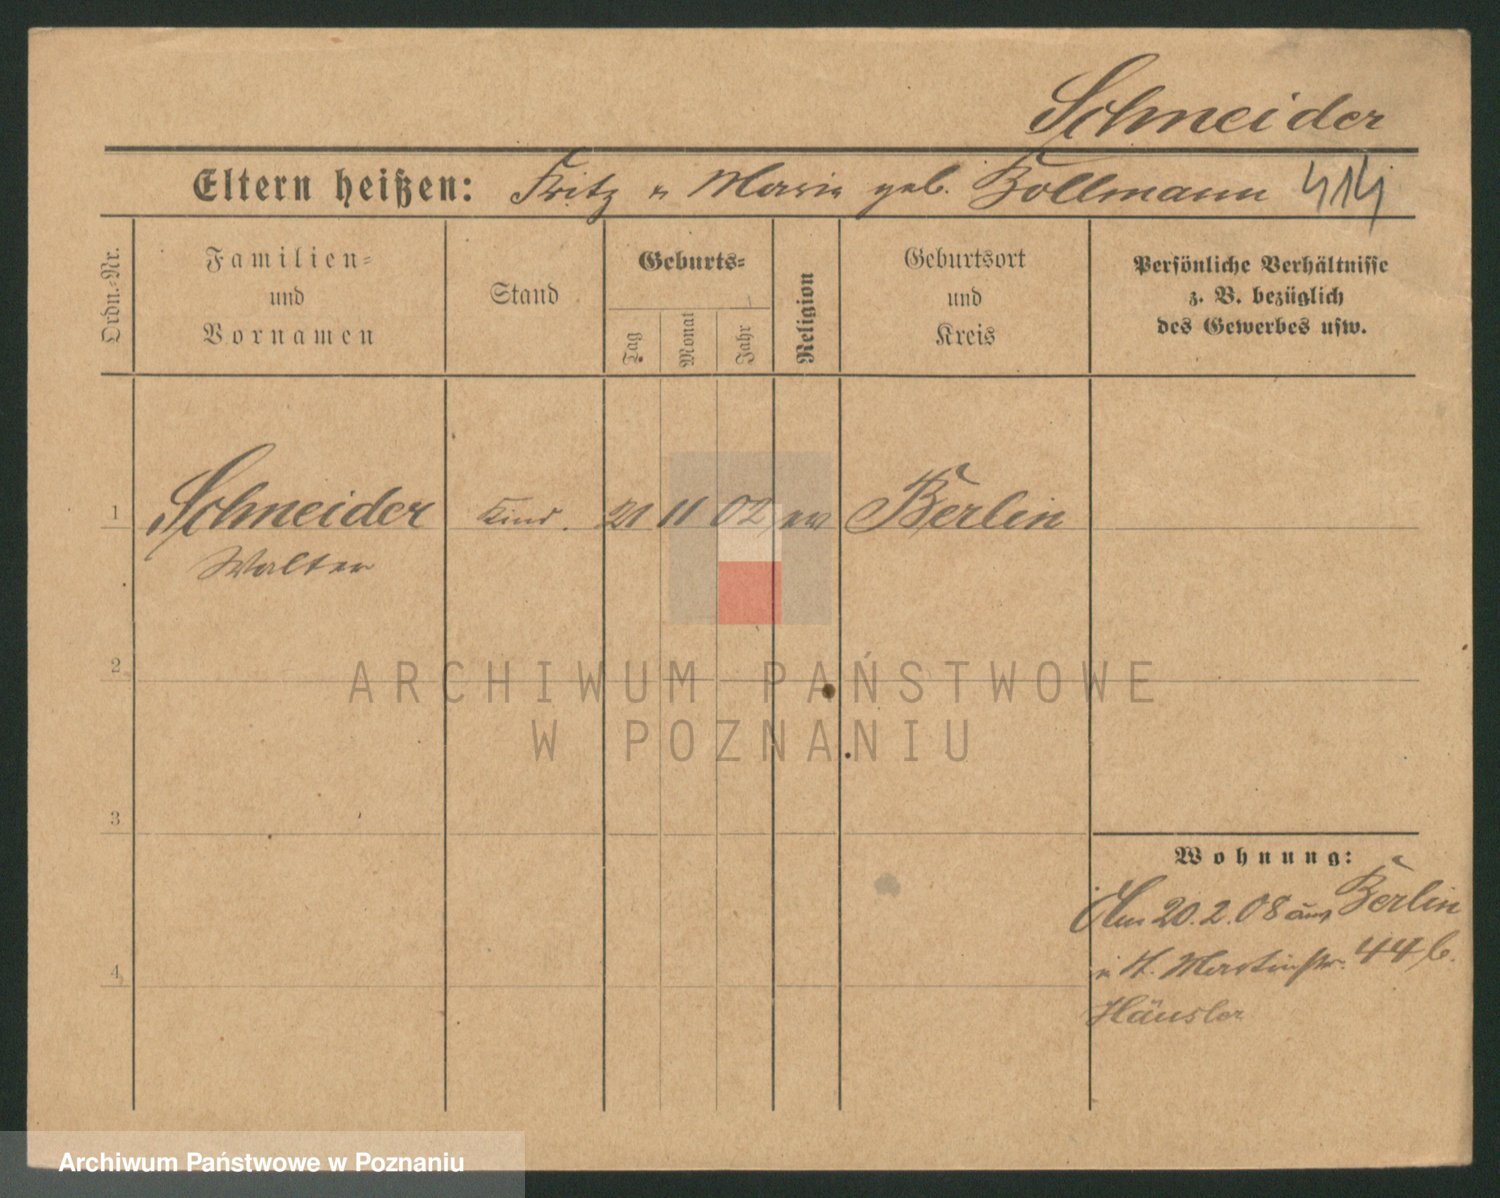 Schneider
Eltern heißen: Fritz u Marie geb. Bollmann 414
Ordn.-Nr.
Familien-
und
Vornamen
Stand
Geburts-
Tag
Monat
Jahr
Religion
Geburtsort
und
Kreis
Persönliche Verhältnisse
z. B. bezüglich
des Gewerbes usw.
1 Schneider Kind. 21 11 02 ev Berlin
Walter
2
ARCHIWUM PAŃSTWOWE
W POZNANIU
3
Wohnung:
Am 20.2.08 aus Berlin
n. St. Martinstr. 44 b.
Häusler
4
Archiwum Państwowe w Poznaniu